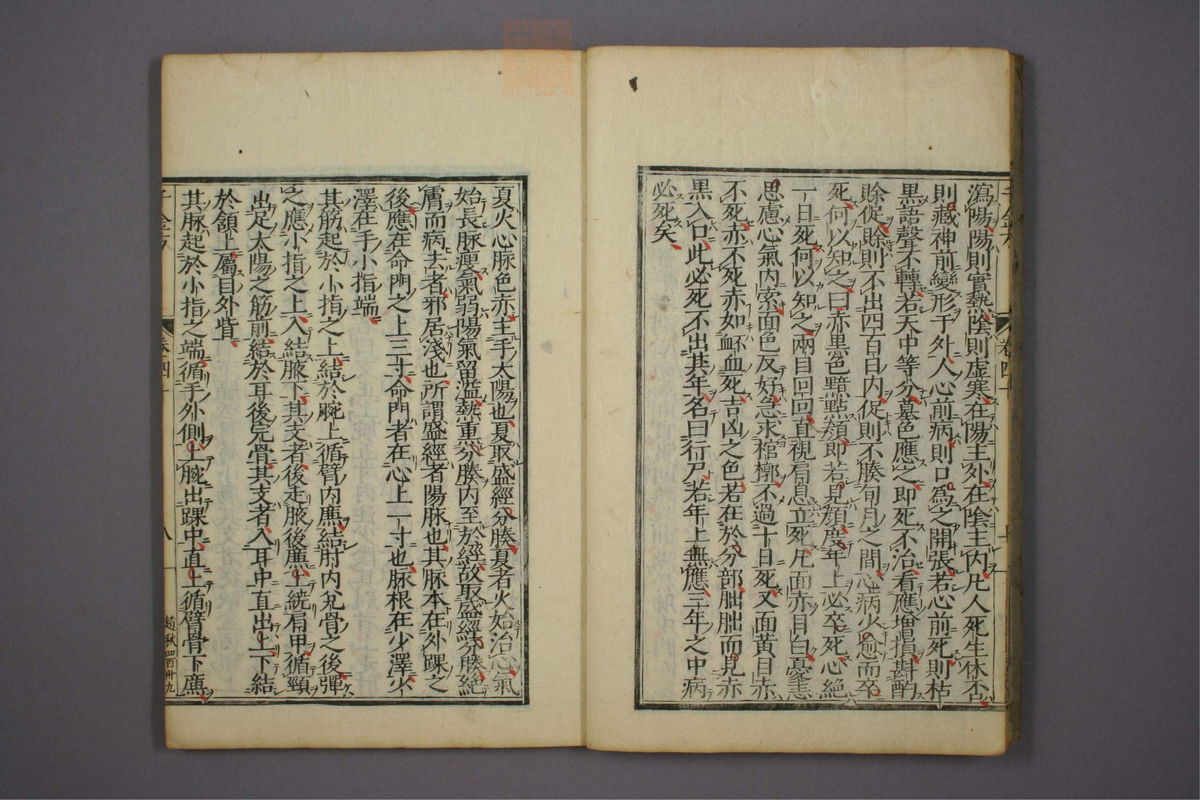 瀉陽陽則實熱陰則虛寒在陽主外在陰主內凡人死生休否
則藏神前變形于外人心前病則口為之開張若心前死則枯
黑語聲不轉若天中等分墓色應之即死不治看應增損斟酌
賒促賒則不出四百日內促則不朞旬月之間心病少愈而卒
死何以知之曰赤黑色黯點顏即若見顏度年上必卒死心絕
一日死何以知之兩目回回直視肩息立死凡面赤目白憂恚
思慮心氣內索面色反好急求棺槨不過十日死又面黃目赤
不死赤不死赤如衃血死吉凶之色若在於分部朏朏而見赤
黑入口此必死不出其年名曰行尸若年上無應三年之中病
必死矣
千金方 卷四十
夏火心脉色赤主手太陽也夏取盛經分腠夏者火始治心氣
始長脉瘦氣弱陽氣留溢熱熏分腠內至於經故取盛經分腠絕
膚而病去者邪居淺也所謂盛經者陽脉也其脉本在外踝之
後應在命門之上三寸命門者在心上一寸也脉根在少澤少
澤在手小指端
其筋起於小指之上結於腕上循臂內廉結肘內兌骨之後彈
之應小指之上入結腋下其支者後走腋後廉上繞肩甲循頸
出足太陽之筋前結於耳後完骨其支者入耳中直出上下結
於頷上屬目外眥
其脉起於小指之端循手外側上腕出踝中直上循臂骨下廉
千金方 卷四十 八 趙秋 四百卅九